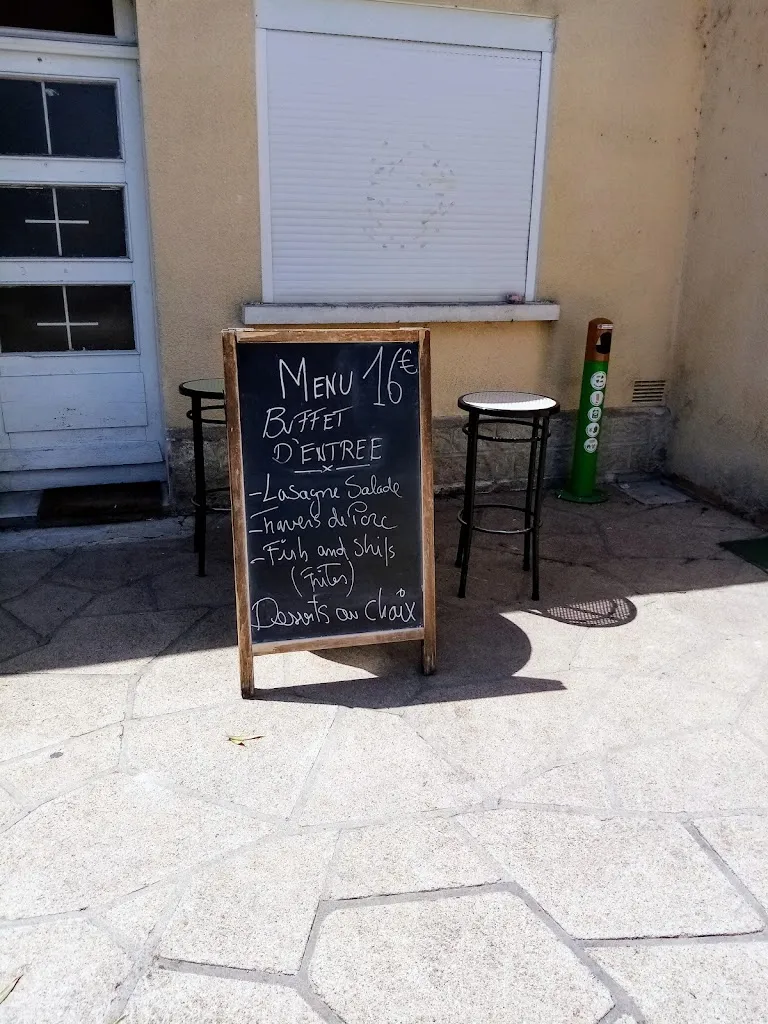 MENU 16€
BUFFET
D'ENTREE
- Lasagne Salade
- Travers de Porc
- Fish and Ships
(Frites)
Desserts au Choix